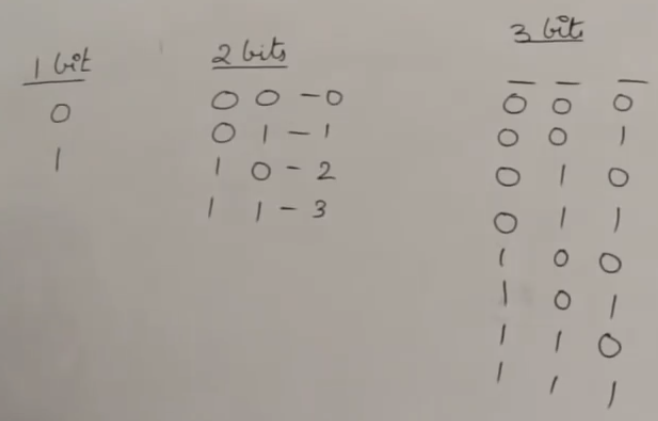 1 bit
0
1
2 bits
0 0 - 0
0 1 - 1
1 0 - 2
1 1 - 3
3 bits
0 0 0
0 0 1
0 1 0
0 1 1
1 0 0
1 0 1
1 1 0
1 1 1